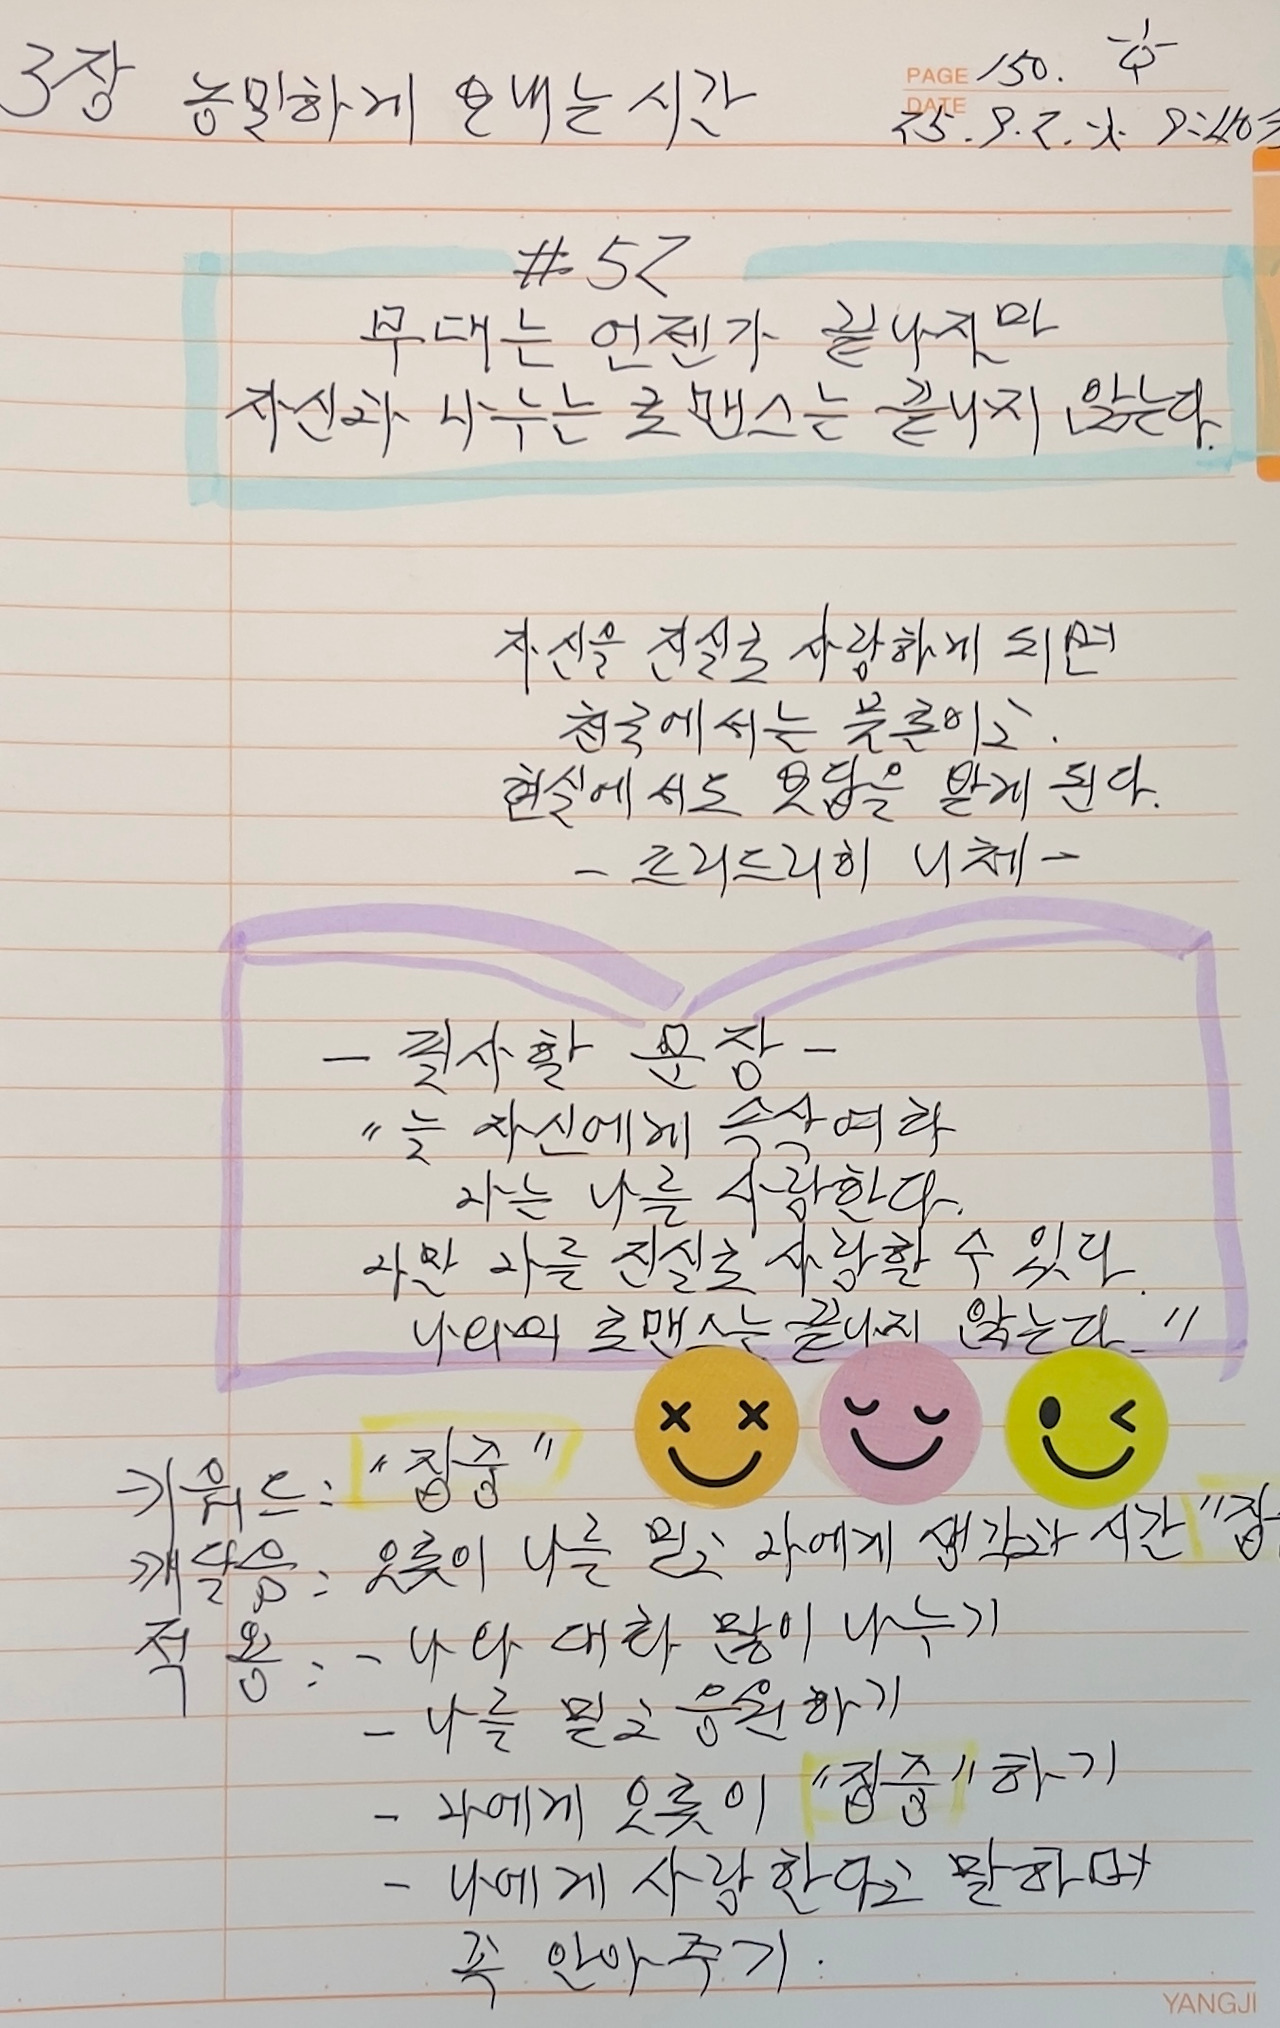 3장 농밀하게 보내는 시간
PAGE 150.
DATE 25.9.2.火 9:40
#52
무대는 언젠가 끝나지만
자신과 나누는 로맨스는 끝나지 않는다.
자신을 진실로 사랑하게 되면
천국에서는 물론이고.
현실에서도 보답을 받게 된다.
- 프리드리히 니체 -
- 필사할 문장 -
"늘 자신에게 속삭여라
나는 나를 사랑한다.
나만 나를 진실로 사랑할 수 있다.
나와의 로맨스는 끝나지 않는다."
키워드: "집중"
깨달음: 오롯이 나를 믿고 나에게 생각과 시간
적 용: - 나와 대화 많이 나누기
- 나를 믿고 응원하기
- 나에게 오롯이 "집중"하기
- 나에게 사랑한다고 말하며
꼭 안아주기.
YANGJI